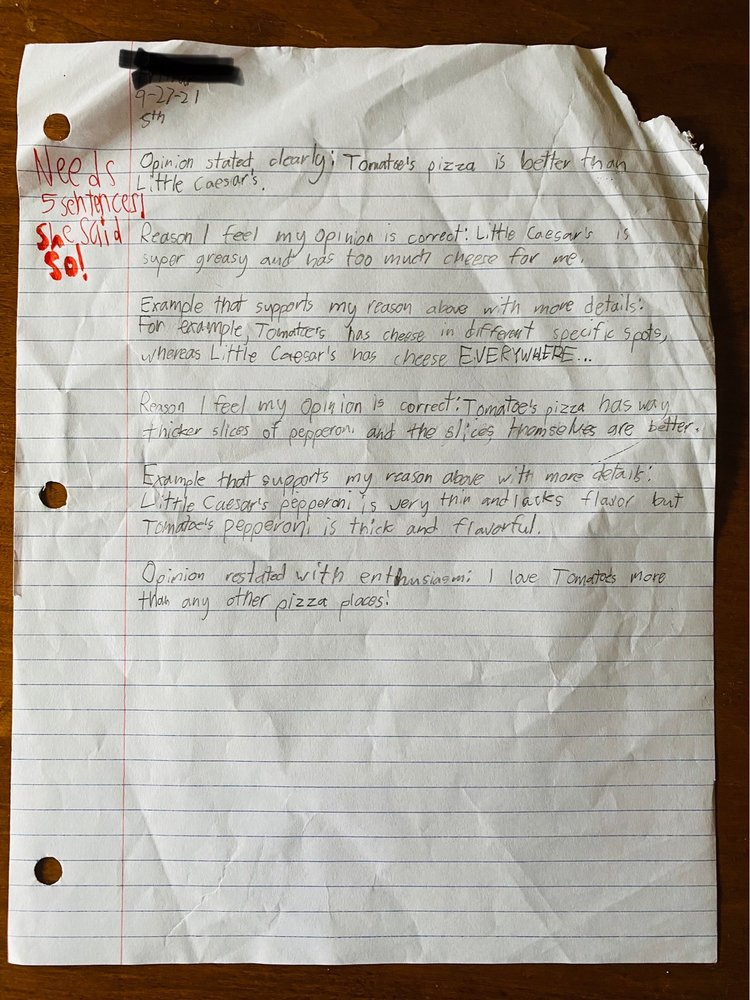 9-27-21
5th
Needs
5 sentences!
She said
So!
Opinion stated clearly: Tomatoe's pizza is better than
Little Caesar's.
Reason I feel my opinion is correct: Little Caesar's is
super greasy and has too much cheese for me.
Example that supports my reason above with more details:
For example, Tomatoe's has cheese in different specific spots,
whereas Little Caesar's has cheese EVERYWHERE...
Reason I feel my opinion is correct: Tomatoe's pizza has way
thicker slices of pepperoni and the slices themselves are better.
Example that supports my reason above with more details:
Little Caesar's pepperoni is very thin and lacks flavor but
Tomatoe's pepperoni is thick and flavorful.
Opinion restated with enthusiasm: I love Tomatoes more
than any other pizza places!